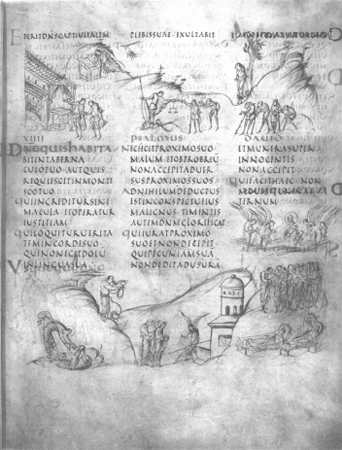 PLEBISSUAE EXULTABIT
XIIII
DNEQUISHABITA
BITINTABERNA
CULOTUO AUTQUIS
REQUIESCITINMONTE
SCOTUO
QUIINGREDITURSINE
MACULA ETOPERATUR
IUSTITIAM
QUILOQUITURUERITA
TEMINCORDESUO
QUINONEGITDOLU
INLINGUASUA
PSALMUS
NECFECITPROXIMOSUO
MALUM ETOPPROBRIU
NONACCEPITADUER
SUSPROXIMOSSUOS
ADNIHILUMDEDUCTUS
ESTINCONSPECTUEIUS
MALIGNUS TIMENTIS
AUTEMDNMGLORIFICAT
QUIIURATPROXIMO
SUOETNONDECEPIT
QUIPECUNIAMSUA
NONDEDITADUSURA
DAUID
ETMUNERASUPER
INNOCENTES
NONACCEPIT
QUIFACITHAEC NON
TERNUM